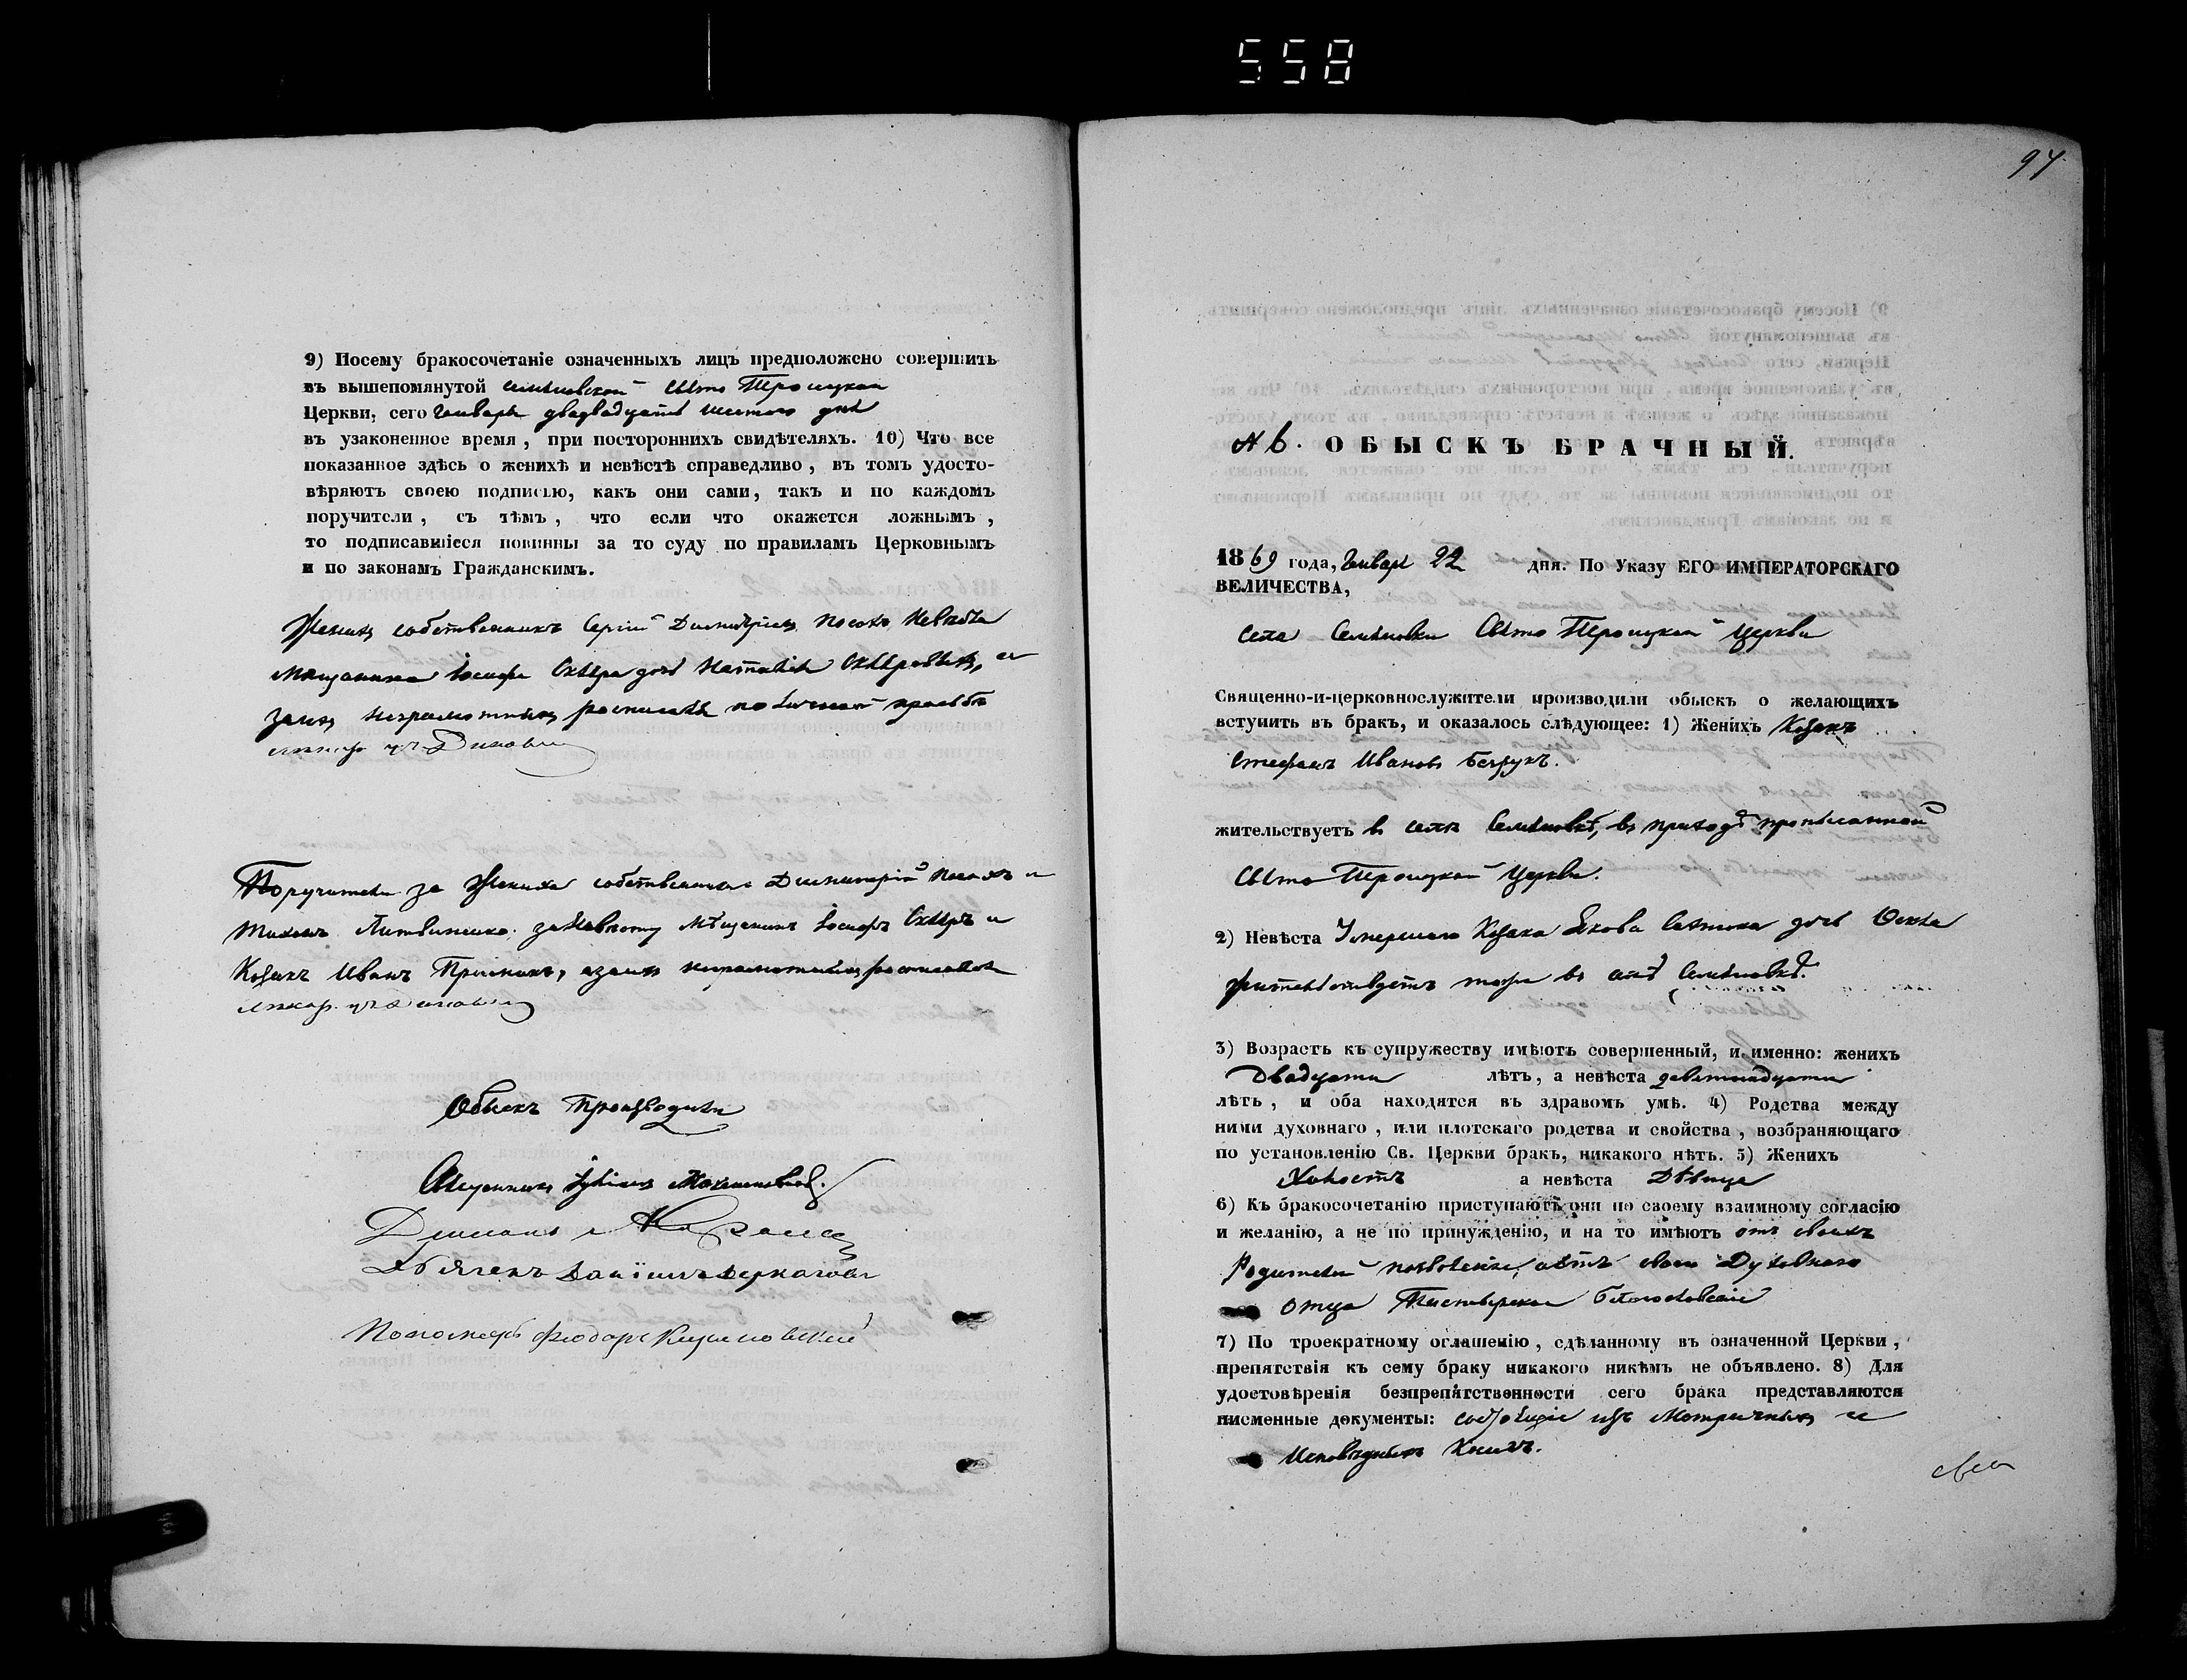 558
9) Посему бракосочетаніе означенныхъ лицъ предположено совершить
въ вышепомянутой Свято Троицкой
Церкви, сего Генваря двадцать шестого дня
въ узаконенное время, при постороннихъ свидѣтеляхъ. 10) Что все
показанное здѣсь о женихѣ и невѣстѣ справедливо, въ томъ удосто-
вѣряютъ своею подписью, какъ они сами, такъ и по каждомъ
поручители, съ тѣмъ, что если что окажется ложнымъ,
то подписавшіеся повинны за то суду по правиламъ Церковнымъ
и по законамъ Гражданскимъ.
Женихъ собственникъ Сергій Димитріевъ Невѣста
мѣщанина Іосифа дочь Наталія а
занихъ неграмотныхъ росписался по личной просьбѣ
Поручители за Жениха собственники Димитрій и
Тихонъ Литвиненко. за Невѣсту Мѣщанинъ Іосифъ и
Козакъ Иванъ а за нихъ неграмотныхъ росписался
Обыскъ Производили
Священникъ
Дьячекъ Даніилъ
Пономарь Феодоръ
94
№ 6. ОБЫСКЪ БРАЧНЫЙ.
1869 года, Генваря 22 дня. По Указу ЕГО ИМПЕРАТОРСКАГО
ВЕЛИЧЕСТВА,
села Семѣновки Свято Троицкой Церкви
Священно-и-церковнослужители производили обыскъ о желающихъ
вступить въ бракъ, и оказалось слѣдующее: 1) Женихъ Козакъ
Стефанъ Ивановъ
жительствуетъ в селѣ Семѣновкѣ, въ приходѣ прописанной
Свято Троицкой Церкви.
2) Невѣста Умершаго Козака Якова дочь
жительствуетъ тоже въ селѣ Семѣновкѣ.
3) Возрастъ къ супружеству имѣютъ совершенный, и именно: женихъ
Двадцати лѣтъ, а невѣста девятнадцати
лѣтъ, и оба находятся въ здравомъ умѣ. 4) Родства между
ними духовнаго, или плотскаго родства и свойства, возбраняющаго
по установленію Св. Церкви бракъ, никакого нѣтъ. 5) Женихъ
Холостъ а невѣста Дѣвица
6) Къ бракосочетанію приступаютъ они по своему взаимному согласію
и желанію, а не по принужденію, и на то имѣютъ отъ своихъ
Родителей позволеніе, а отъ своего Духовнаго
отца Пастырское благословеніе
7) По троекратному оглашенію, сдѣланному въ означенной Церкви,
препятствія къ сему браку никакого никѣмъ не объявлено. 8) Для
удостовѣренія безпрепятственности сего брака представляются
писменные документы: изъ Метричныхъ и
Исповѣдныхъ Книгъ.